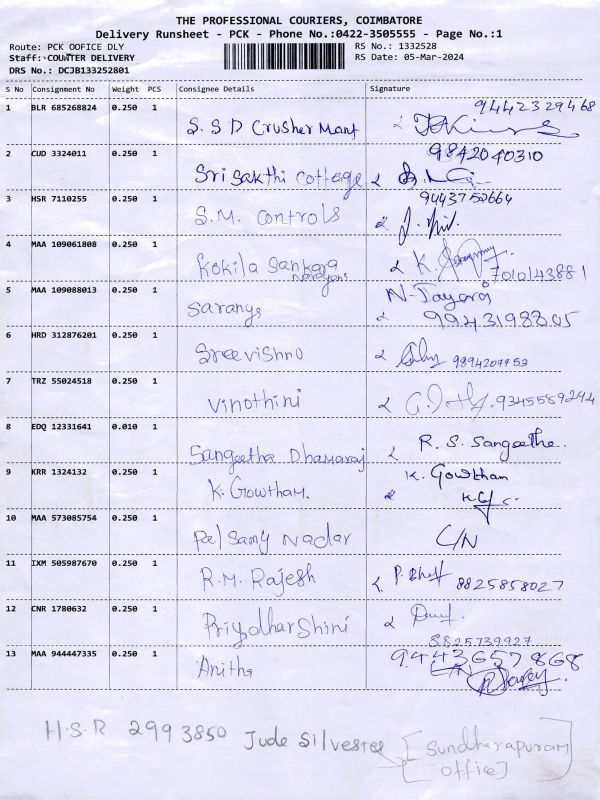 THE PROFESSIONAL COURIERS, COIMBATORE
Delivery Runsheet - PCK - Phone No.:0422-3505555 - Page No.:1
Route: PCK OOFICE DLY RS No.: 1332528
Staff: COUNTER DELIVERY RS Date: 05-Mar-2024
DRS No.: DCJB133252801
S No Consignment No Weight PCS Consignee Details Signature
1 BLR 685268824 0.250 1 S.S D Crusher Manf 9442329468
2 CUD 3324011 0.250 1 Sri Sakthi cottege 9842040310
3 HSR 7110255 0.250 1 S.M. Controls 9443752664
4 MAA 109061808 0.250 1 Kokila Sankara Narayani K.
5 MAA 109088013 0.250 1 Saranya N-Jayaraj
6 HRD 312876201 0.250 1 Sreevishnu 9894207753
7 TRZ 55024518 0.250 1 Vinothini 9345589244
8 EDQ 12331641 0.010 1 Sangeetha Dhamaraj R. S. Sangeetha..
9 KRR 1324132 0.250 1 K. Gowtham. K. Gowtham
10 MAA 573085754 0.250 1 Pal Samy Nadar C/N
11 IXM 505987670 0.250 1 R.M. Rajesh 8825858027
12 CNR 1780632 0.250 1 Priyadharshini 8825739927
13 MAA 944447335 0.250 1 Anitha 9443657868
H.S.R 2993850 Jude Silvester [Sundharapuram
Office]